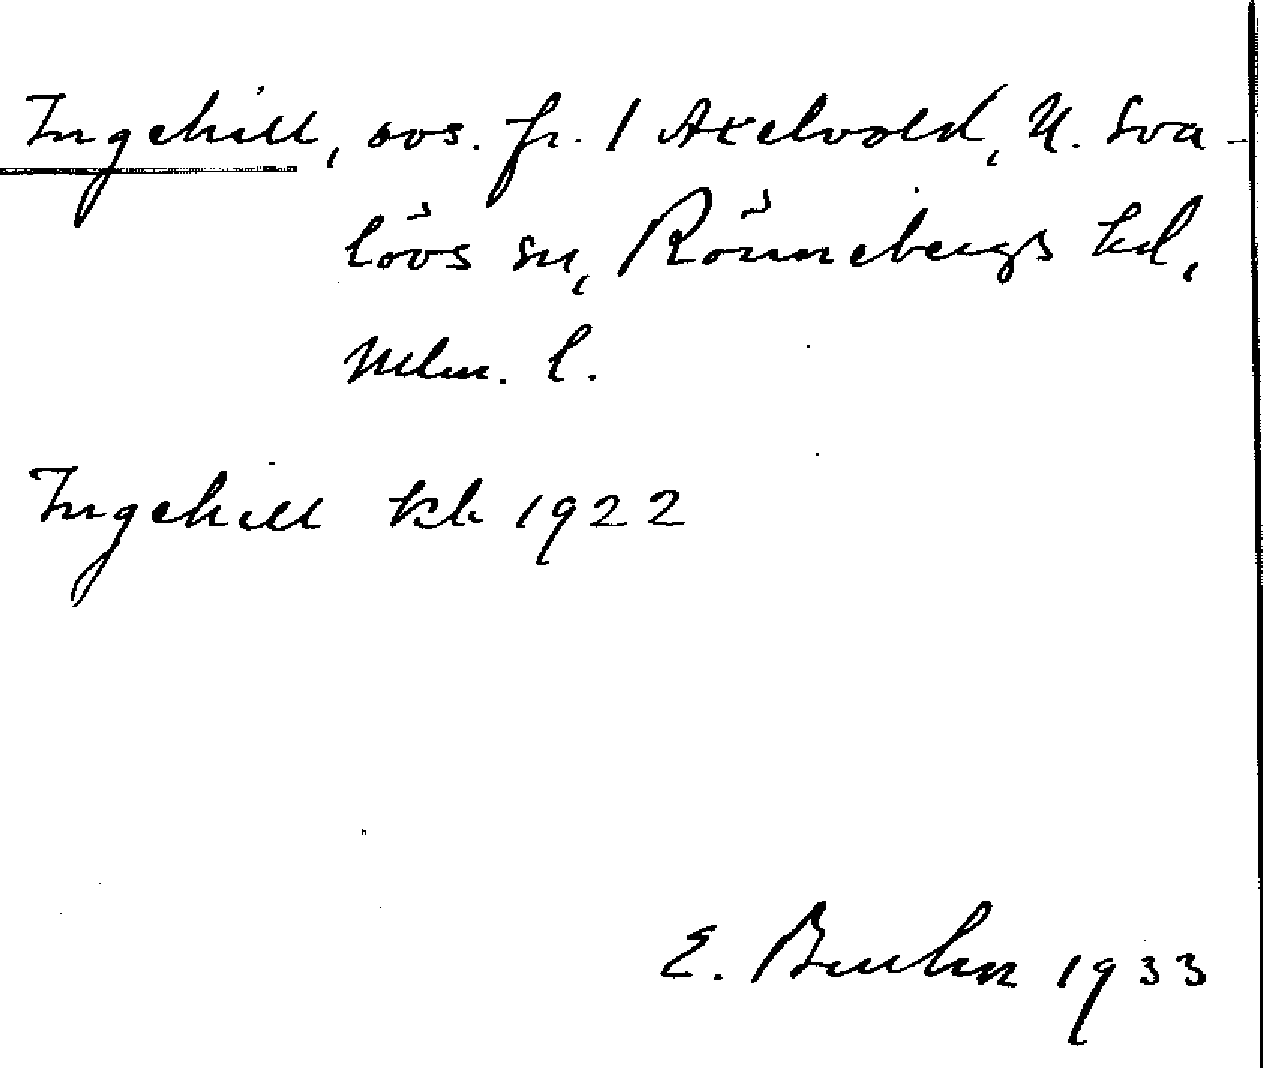 Ingehill, avs. fr. 1 Axelvold, N. Sva-
lövs sn, Rönnebergs hd,
Mlm. l.
Ingehill kb 1922
E. Buhn 1933